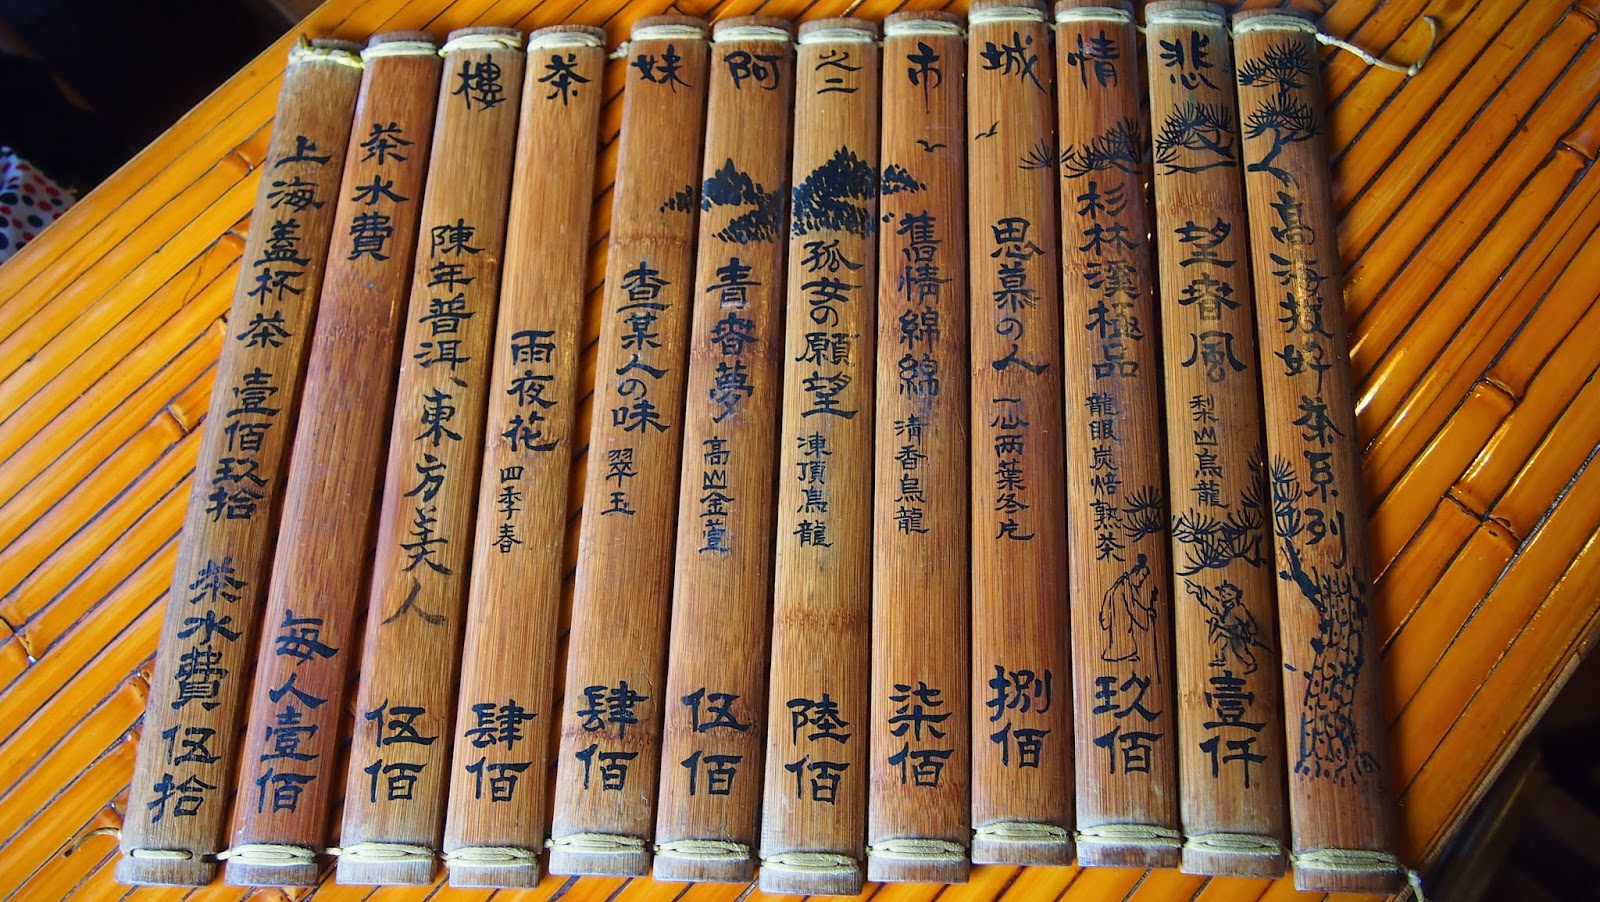 悲情城市之二阿妹茶樓
高海拔好茶系列
望春風 梨山烏龍 壹仟
杉林溪極品 龍眼炭焙熟茶 玖佰
思慕の人 一心兩葉冬片 捌佰
舊情綿綿 清香烏龍 柒佰
孤女の願望 凍頂烏龍 陸佰
青春夢 高山金萱 伍佰
查某人の味 翠玉 肆佰
雨夜花 四季春 肆佰
陳年普洱、東方美人 伍佰
茶水費 每人壹佰
上海蓋杯茶 壹佰玖拾 茶水費伍拾